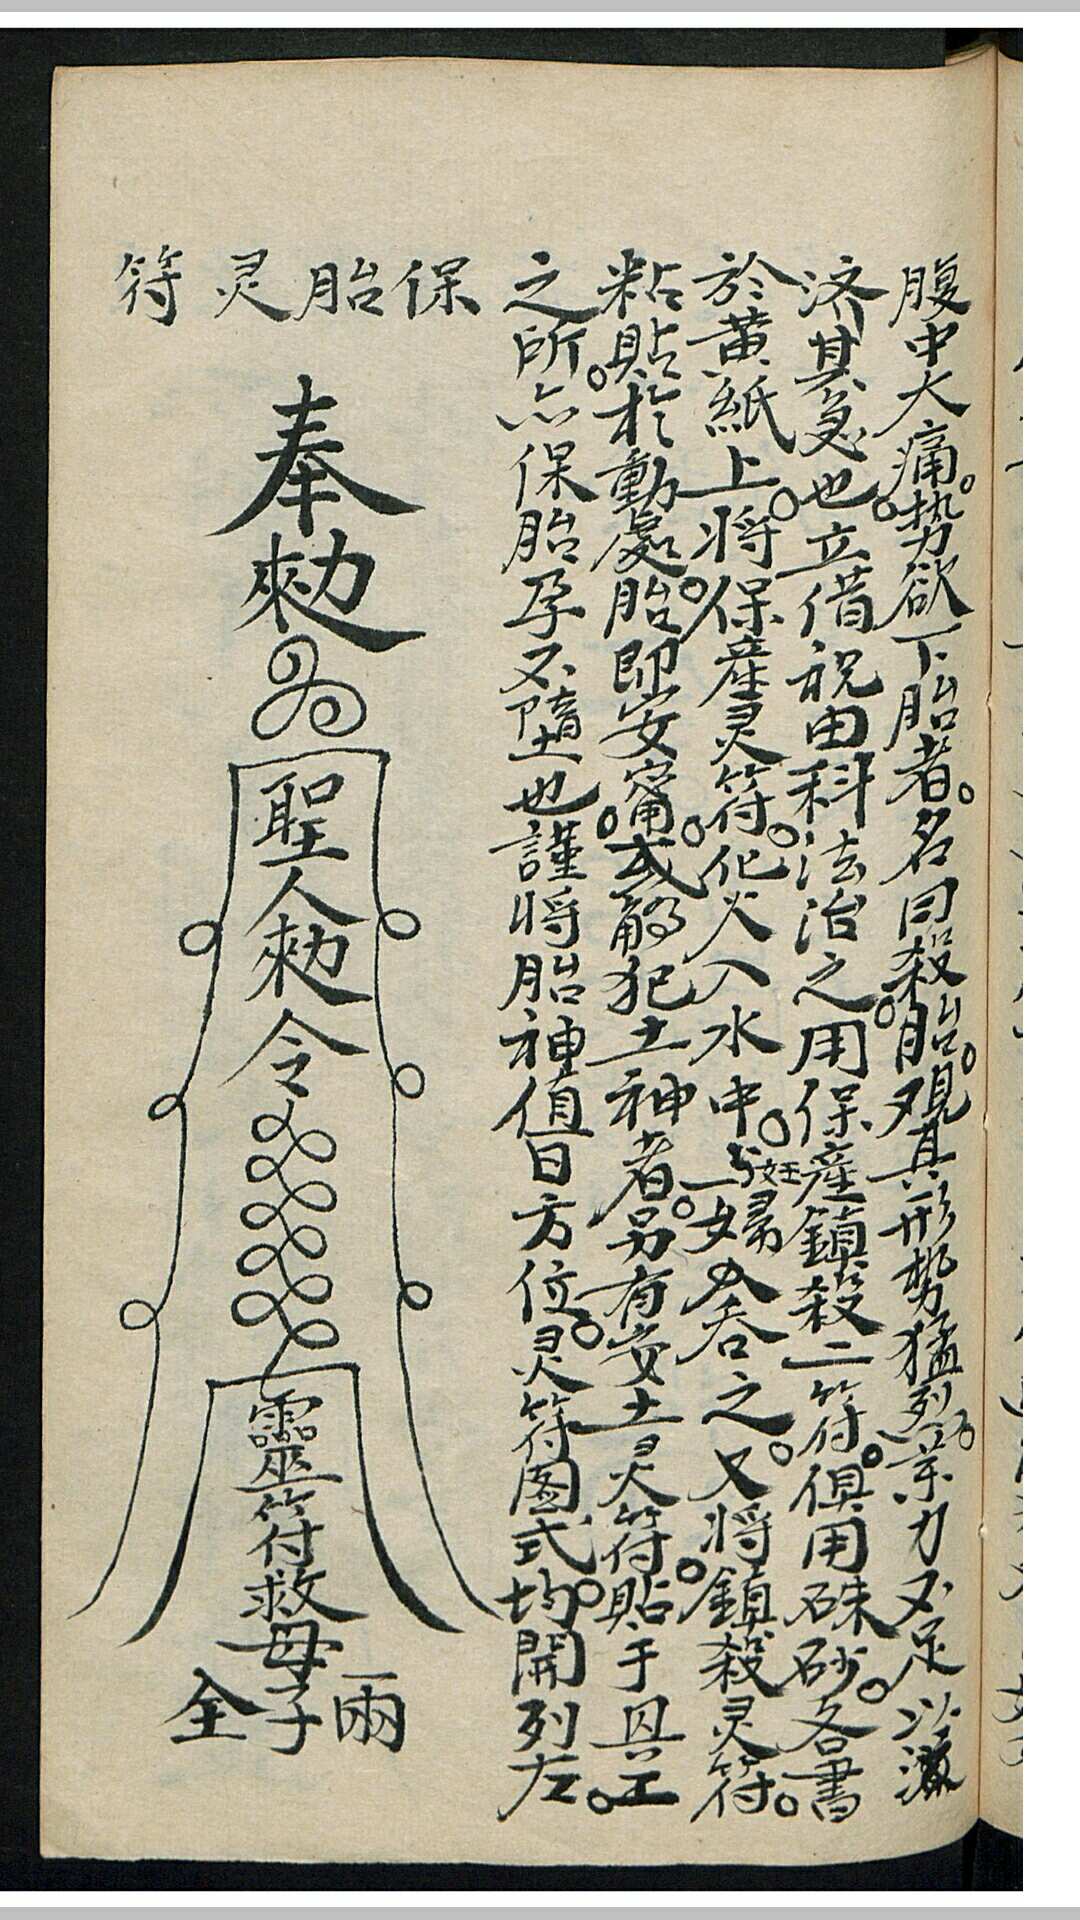 腹中大痛。势欲下胎者。名曰殺胎。观其形势猛烈。葯力不足以
济其急也。立借祝由科法治之。用保產鎮殺二符。俱用硃砂。各書
於黃紙上。将保產灵符。化火入水中。与妊婦吞之。又将鎮殺灵符。
粘貼於動處。胎即安甯。或觸犯土神者。另有安土灵符。貼于具工
之所。亦保胎孕不墮也。謹将胎神值日方位。灵符图式。均開列左。
保胎灵符
奉勑
聖人勑令
靈符救母子
兩全